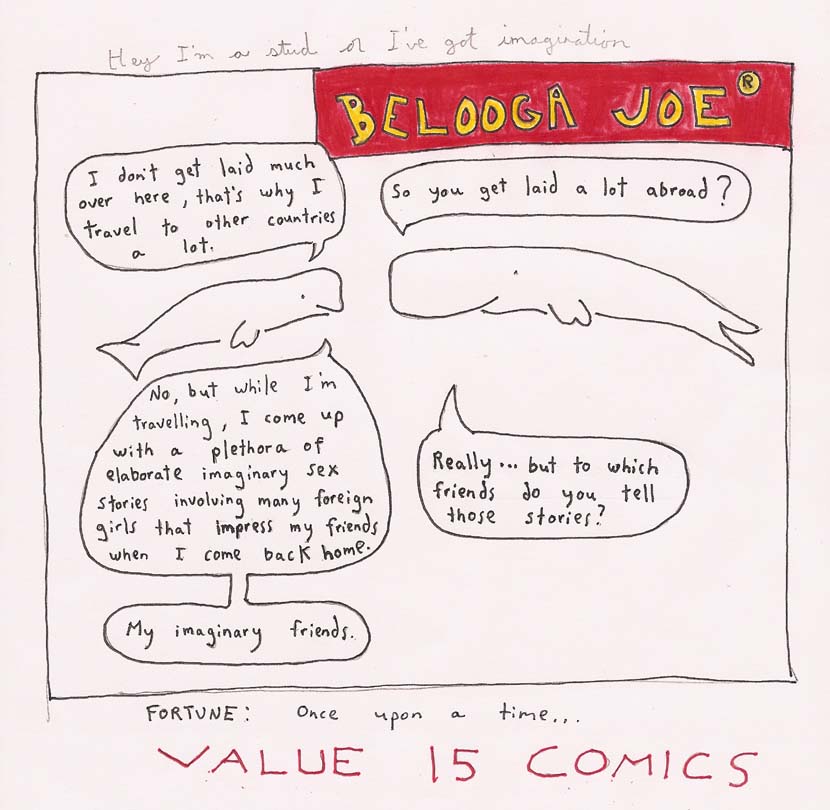 Hey I'm a stud or I've got imagination
BELOOGA JOE®
I don't get laid much
over here, that's why I
travel to other countries
a lot.
So you get laid a lot abroad?
No, but while I'm
travelling, I come up
with a plethora of
elaborate imaginary sex
stories involving many foreign
girls that impress my friends
when I come back home.
Really... but to which
friends do you tell
those stories?
My imaginary friends.
FORTUNE: Once upon a time...
VALUE 15 COMICS